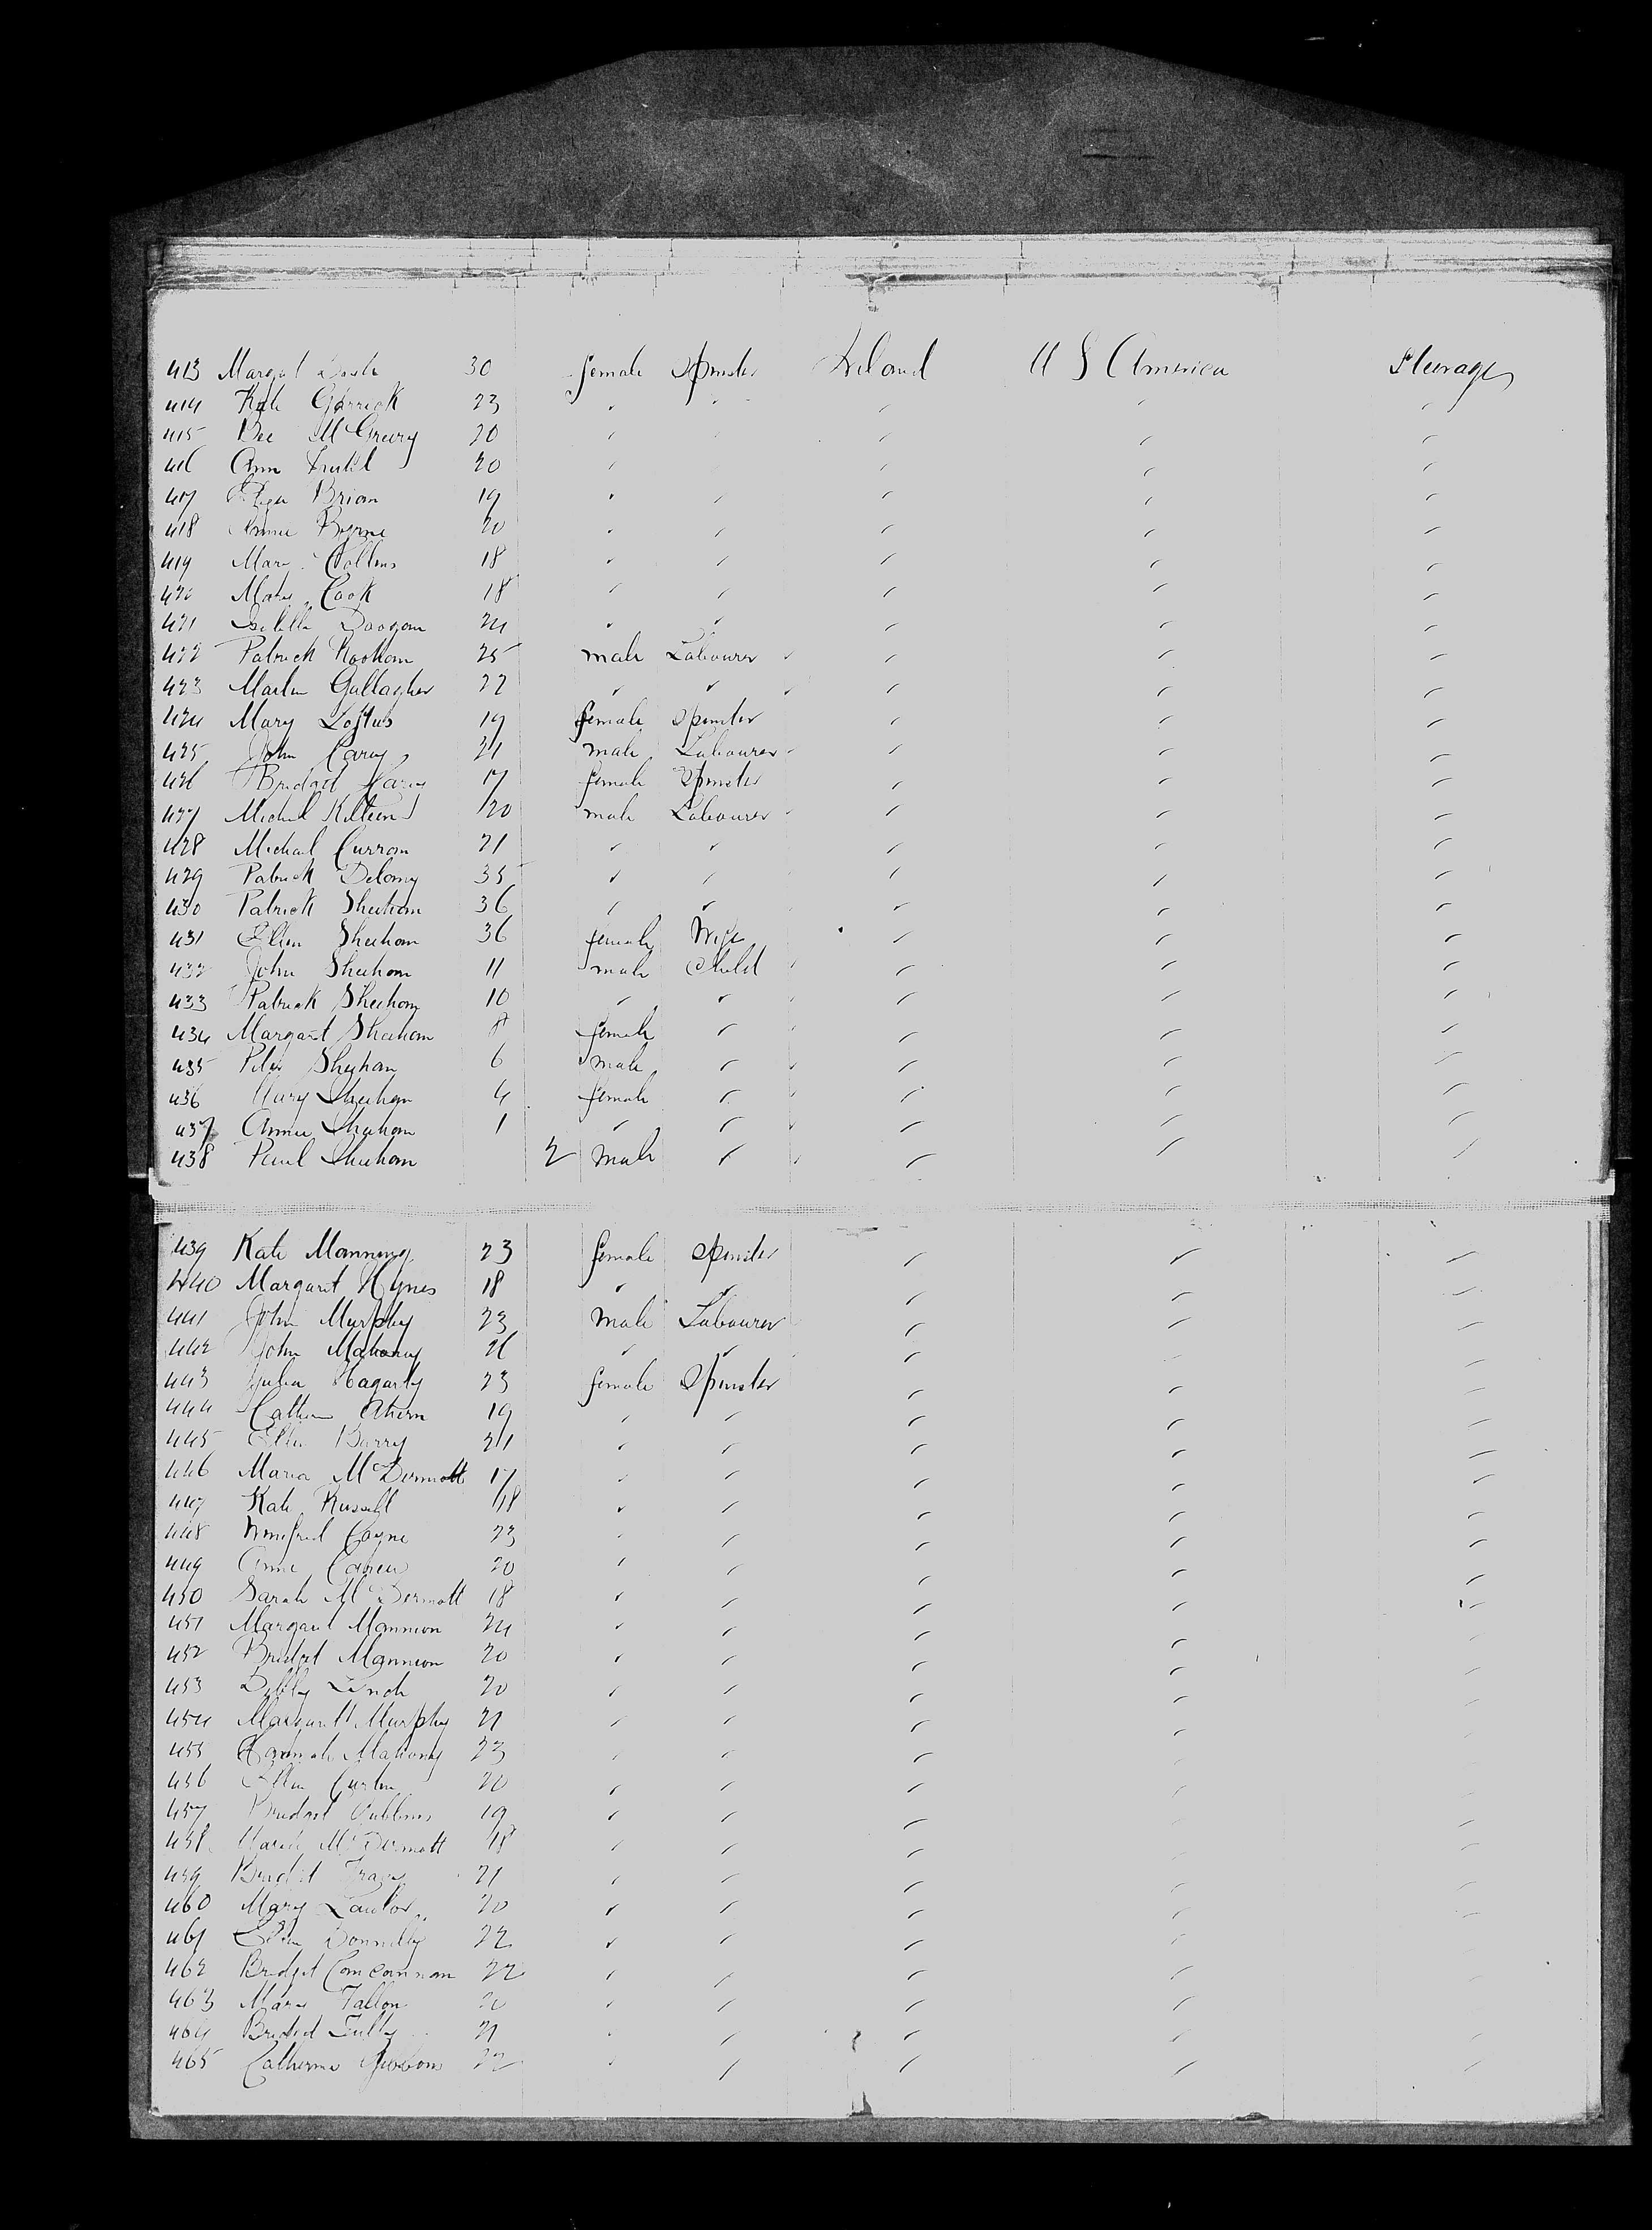 413 Margat 30 female Spinster Ireland U S America Steerage
414 Kate Garrick 23 " " " " "
415 Bee McGreevy 20 " " " "
416 Ann 20 " " " "
417 Eliza Brian 19 " " " " "
418 Annie Byrne 20 " " " " "
419 Mary Collins 18 " " " " "
420 Mary Cook 18 " " " " "
421 Doogan 24 " " " " "
422 Patrick Noonan 25 male Labourer " " "
423 Martin Gallagher 22 " " " " "
424 Mary Loftus 19 female Spinster " " "
425 John Carey 21 male Labourer " " "
426 Bridget 17 female Spinster " " "
427 Michael Killeen 20 male Labourer " " "
428 Michael Curran 21 " " " " "
429 Patrick Delany 35 " " " " "
430 Patrick Sheehan 36 " " " " "
431 Ellen Sheehan 36 female Wife " " "
432 John Sheehan 11 male Child " " "
433 Patrick Sheehan 10 " " " " "
434 Margaret Sheehan 8 female " " " "
435 Peter Sheehan 6 male " " " "
436 Mary Sheehan 4 female " " " "
437 Annie Sheehan 1 " " " " "
438 Paul Sheehan 2 male " " " "
439 Kate Manning 23 female Spinster " " "
440 Margaret Hynes 18 " " " " "
441 John Murphy 23 male Labourer " " "
442 John Mahony 26 " " " " "
443 Julia Hagarty 23 female Spinster " " "
444 Cathern Ahern 19 " " " " "
445 Ellen Barry 21 " " " " "
446 Maria McDermott 17 " " " " "
447 Kate Russell 18 " " " " "
448 Winifred Coyne 23 " " " " "
449 Anne Carew 20 " " " " "
450 Sarah McDermott 18 " " " " "
451 Margaret Mannion 24 " " " " "
452 Bridget Mannion 20 " " " " "
453 Lynch 20 " " " " "
454 Margaret Murphy 21 " " " " "
455 Hannah Mahony 23 " " " " "
456 Ellen Curtin 20 " " " " "
457 Bridget 19 " " " " "
458 McDermott 18 " " " " "
459 Bridget 21 " " " " "
460 Mary Lawlor 20 " " " " "
461 Ellen Donnelly 22 " " " " "
462 Bridget Concannon 22 " " " " "
463 Mary Fallon 20 " " " " "
464 Bridget Tully 21 " " " " "
465 Catherine 22 " " " " "